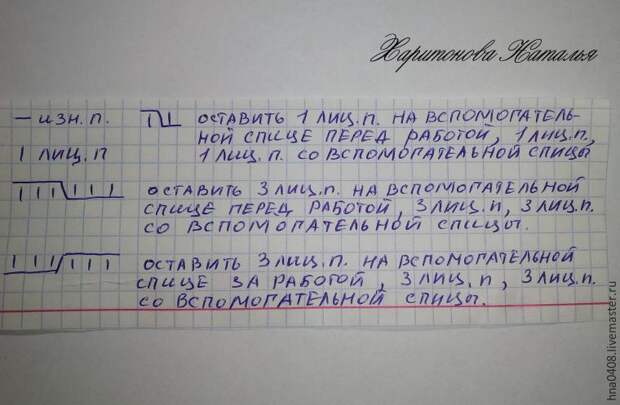 Харитонова Наталья
— изн. п.
ОСТАВИТЬ 1 ЛИЦ. П. НА ВСПОМОГАТЕЛЬ-
НОЙ СПИЦЕ ПЕРЕД РАБОТОЙ, 1 ЛИЦ. П.,
1 ЛИЦ. П. СО ВСПОМОГАТЕЛЬНОЙ СПИЦЫ
I ЛИЦ. П
ОСТАВИТЬ 3 ЛИЦ. П. НА ВСПОМОГАТЕЛЬНОЙ
СПИЦЕ ПЕРЕД РАБОТОЙ, 3 ЛИЦ. П, 3 ЛИЦ. П.
СО ВСПОМОГАТЕЛЬНОЙ СПИЦЫ.
ОСТАВИТЬ 3 ЛИЦ. П. НА ВСПОМОГАТЕЛЬНОЙ
СПИЦЕ ЗА РАБОТОЙ, 3 ЛИЦ. П, 3 ЛИЦ. П.
СО ВСПОМОГАТЕЛЬНОЙ СПИЦЫ.
hna0408.livemaster.ru